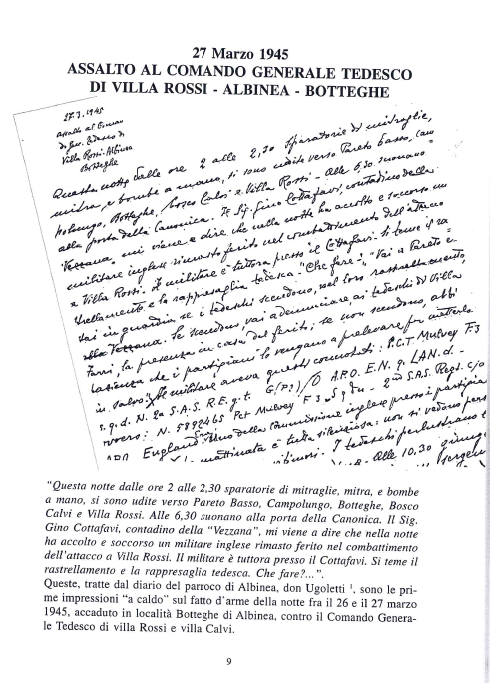 27 Marzo 1945
ASSALTO AL COMANDO GENERALE TEDESCO
DI VILLA ROSSI - ALBINEA - BOTTEGHE
27.3.1945
assalto al Coman
do gen. tedesco di
Villa Rossi-Albinea
Botteghe
Questa notte dalle ore 2 alle 2,30 sparatorie di mitraglie,
mitra, e bombe a mano, si sono udite verso Pareto Basso, Cam
polungo, Botteghe, Bosco Calvi e Villa Rossi - Alle 6,30 suonano
alla porta della Canonica. Il Sig. Gino Cottafavi, contadino della
Vezzana, mi viene a dire che nella notte ha accolto e soccorso un
militare inglese rimasto ferito nel combattimento dell'attacco
a Villa Rossi. Il militare è tuttora presso il Cottafavi. Si teme il ra
strellamento e la rappresaglia tedesca. "Che fare?" "Vai a Pareto e
stai in guardia se i tedeschi scendono, nel loro rastrellamento,
alla Vezzana. Se scendono vai a denunciare ai tedeschi di Villa
Tarri, la presenza in casa del ferito; se non scendono, abbi
pazienza che i partigiani lo vengano a prelevare per metterlo
in salvo". Il militare aveva questi connotati: P.C.T. Mulvey F3
s.g.d. N. 2a S.A.S. R.E.g.t. G(P?)/O A.P.O. E.N.g. LAN.d. -
ovvero: N. 5892465 Pct Mulvey F 3 - 2nd S.A.S. Reg.t. c/o
England. della commissione inglese presso i partigia
mattinata è tutta silenziosa: non si vedono
I tedeschi perlustrano
Alle 10,30
"Questa notte dalle ore 2 alle 2,30 sparatorie di mitraglie, mitra, e bombe
a mano, si sono udite verso Pareto Basso, Campolungo, Botteghe, Bosco
Calvi e Villa Rossi. Alle 6,30 suonano alla porta della Canonica. Il Sig.
Gino Cottafavi, contadino della "Vezzana", mi viene a dire che nella notte
ha accolto e soccorso un militare inglese rimasto ferito nel combattimento
dell'attacco a Villa Rossi. Il militare è tuttora presso il Cottafavi. Si teme il
rastrellamento e la rappresaglia tedesca. Che fare?...".
Queste, tratte dal diario del parroco di Albinea, don Ugoletti ¹, sono le pri-
me impressioni "a caldo" sul fatto d'arme della notte fra il 26 e il 27 marzo
1945, accaduto in località Botteghe di Albinea, contro il Comando Genera-
le Tedesco di villa Rossi e villa Calvi.
9